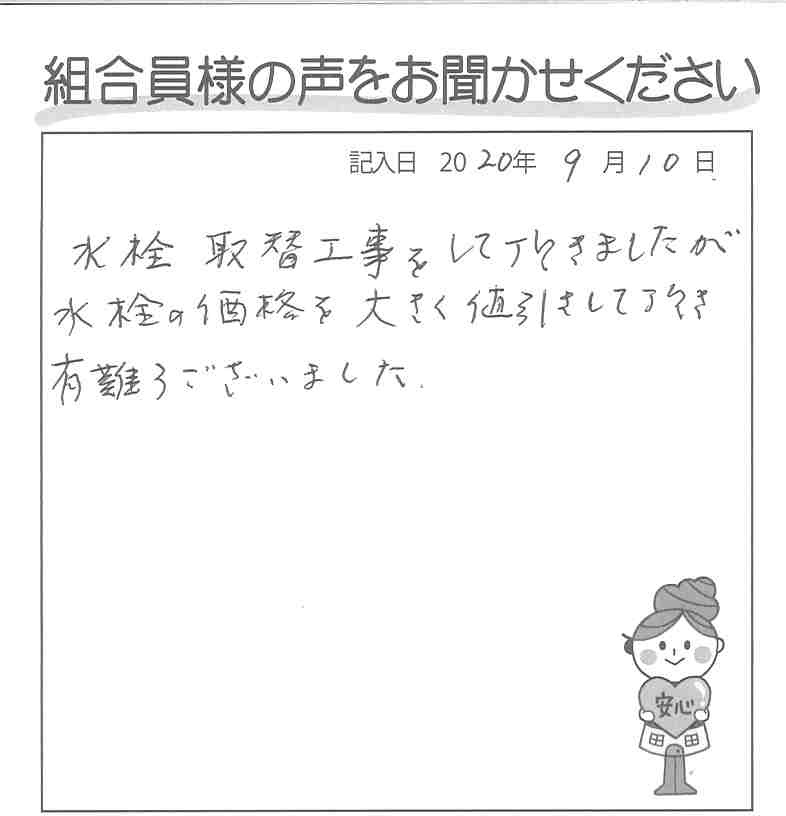 組合員様の声をお聞かせください
記入日 2020年 9月10日
水栓 取替工事をして頂きましたが
水栓の価格を大きく値引きして頂き
有難うございました.
安心